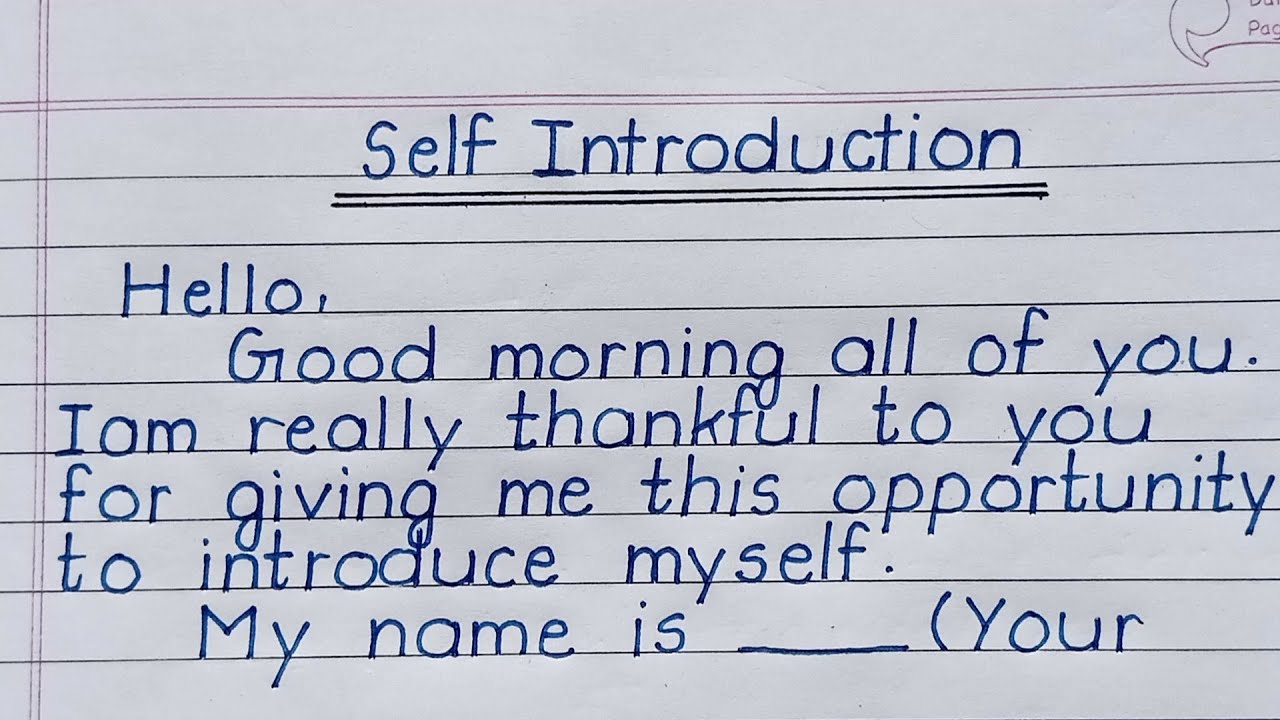 Pag
Self Introduction
Hello,
Good morning all of you.
Iam really thankful to you
for giving me this opportunity
to introduce myself.
My name is ____ (Your